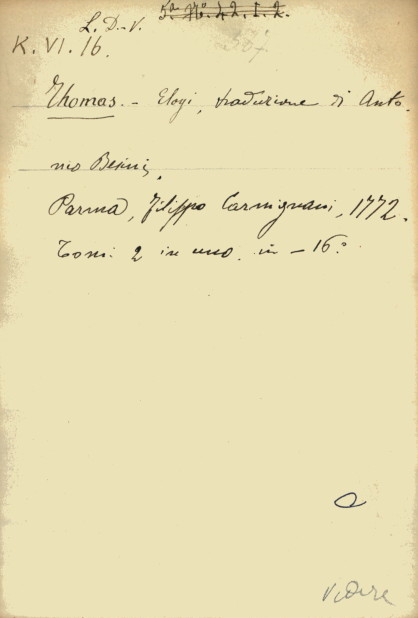 L. D-V. 5ª Nº 4. 2. 5. 2.
K. VI. 16.
Thomas. - Elogi, traduzione di Anto-
nio Berini,
Parma, Filippo Carmignani, 1772.
Tomi 2 in uno. in - 16.°
Vedere